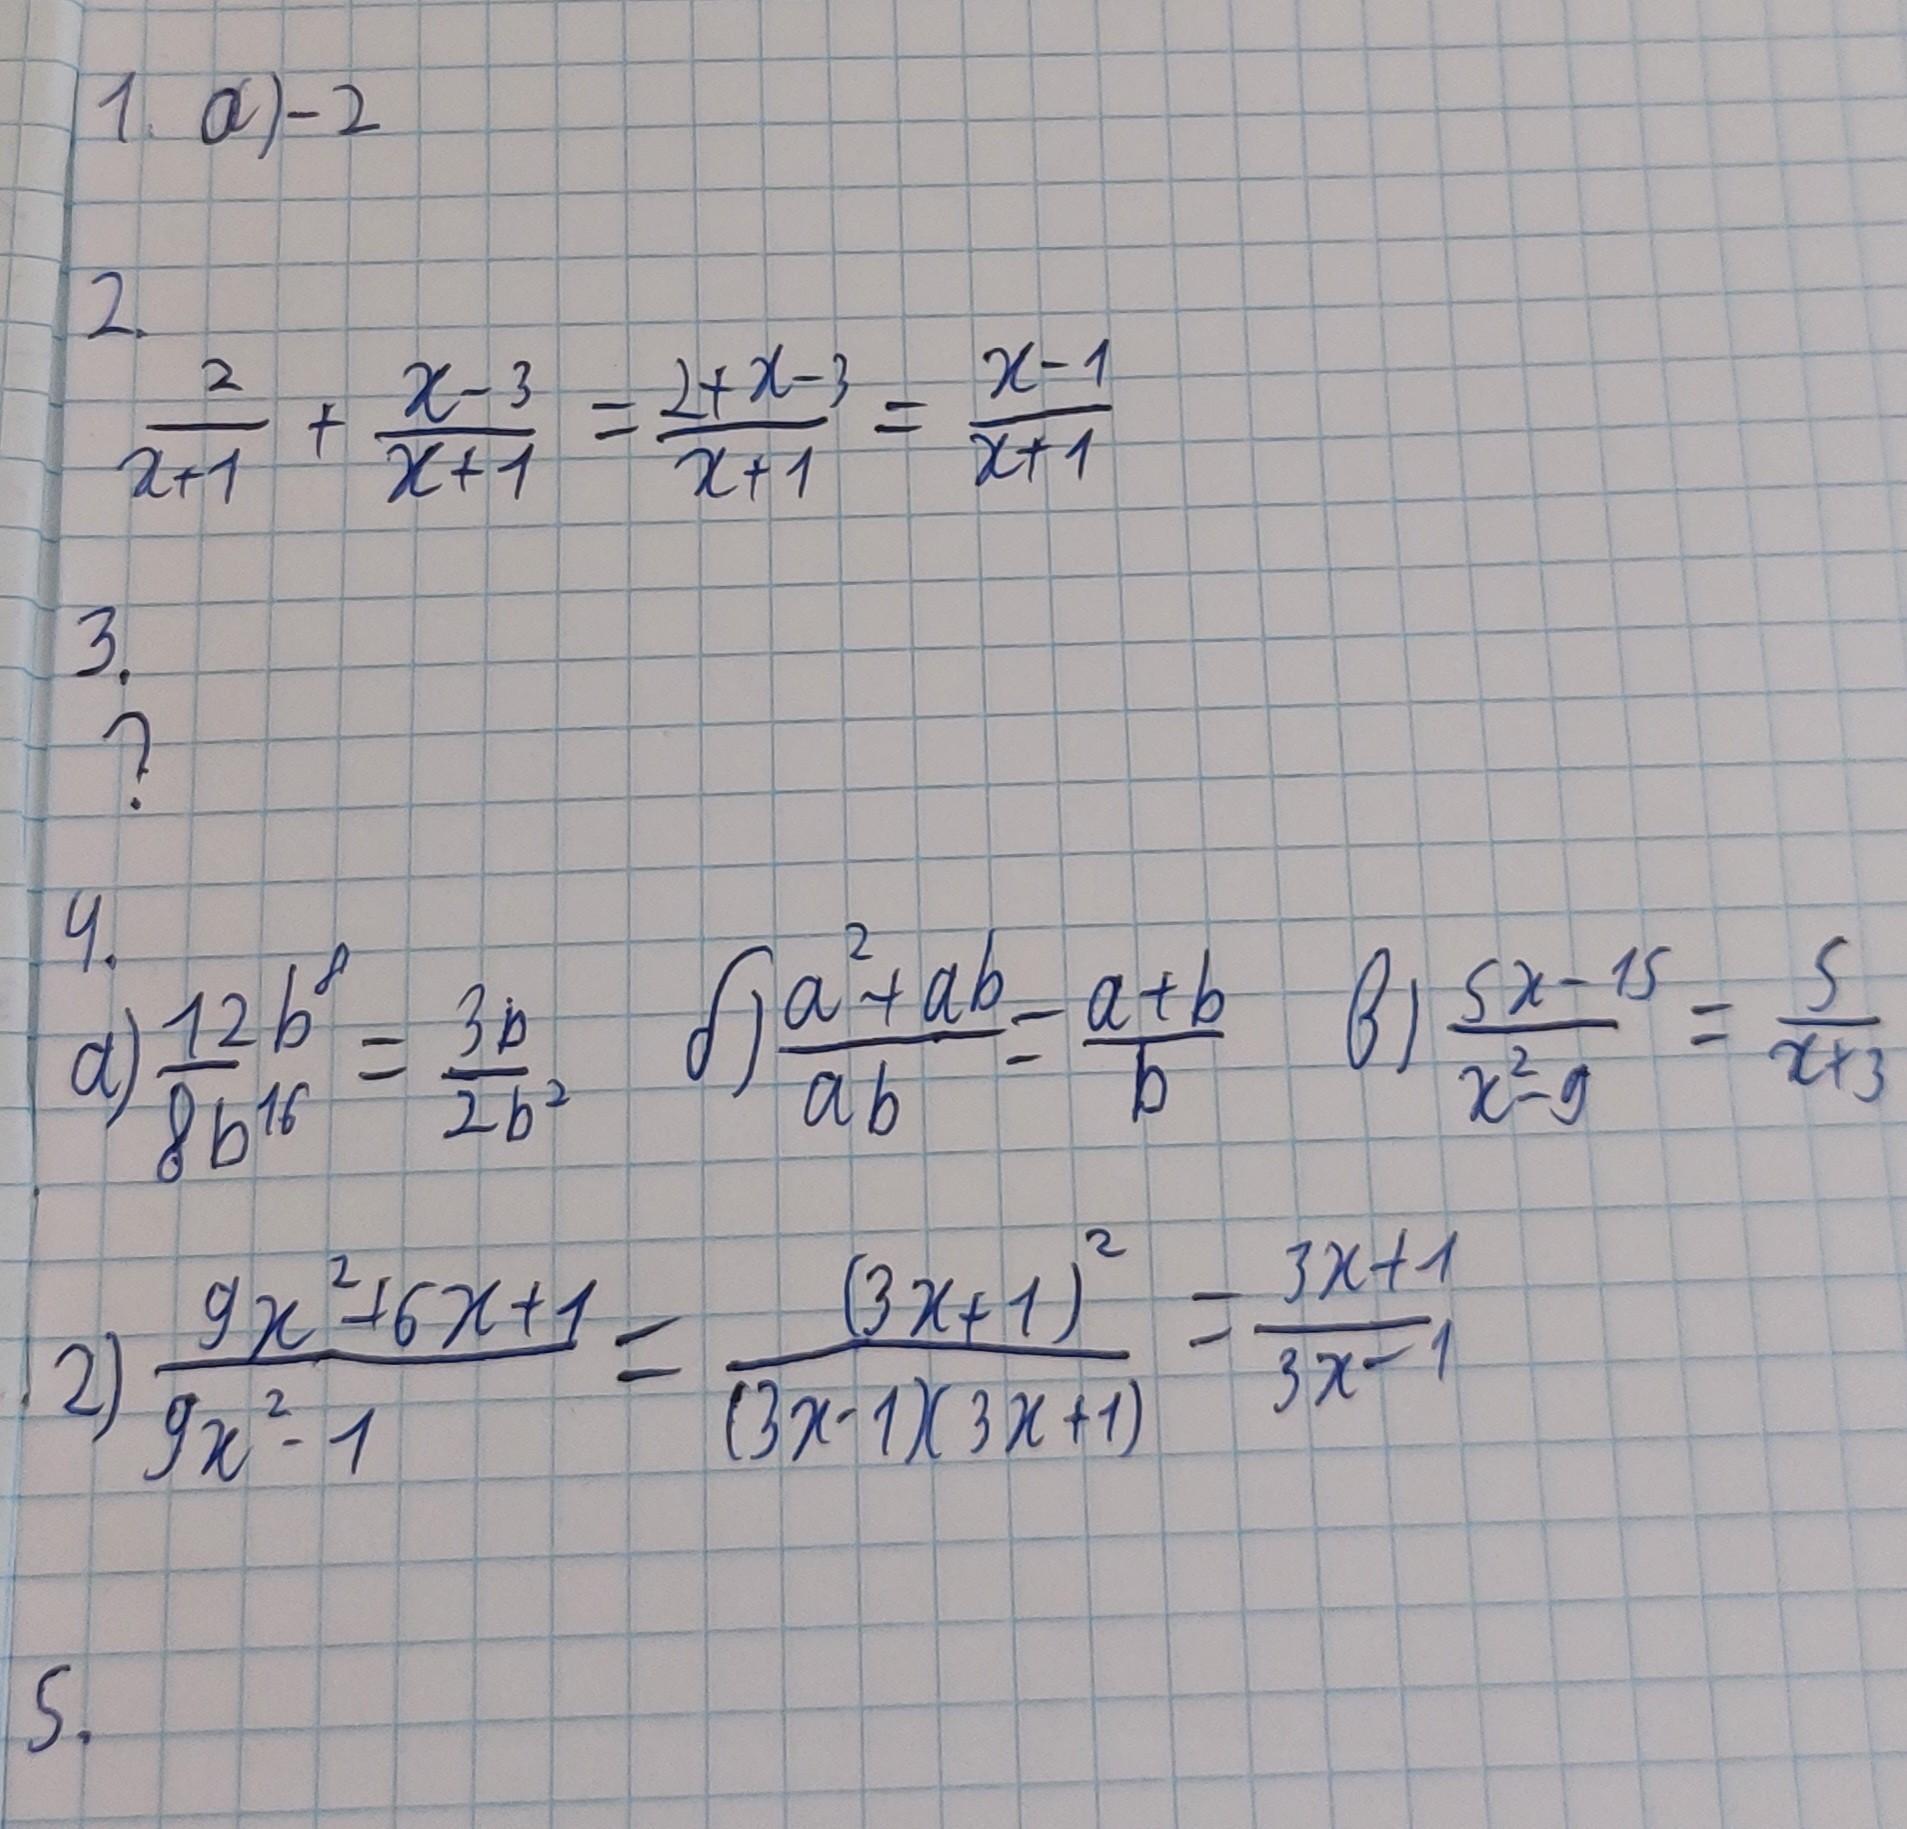 1. а) -2
2.
2/(x+1) + (x-3)/(x+1) = (2+x-3)/(x+1) = (x-1)/(x+1)
3.
?
4.
а) 12b⁸/8b¹⁶ = 3b/2b² б) (a²+ab)/ab = (a+b)/b в) (5x-15)/(x²-9) = 5/(x+3)
2) (9x²+6x+1)/(9x²-1) = (3x+1)²/((3x-1)(3x+1)) = (3x+1)/(3x-1)
5.